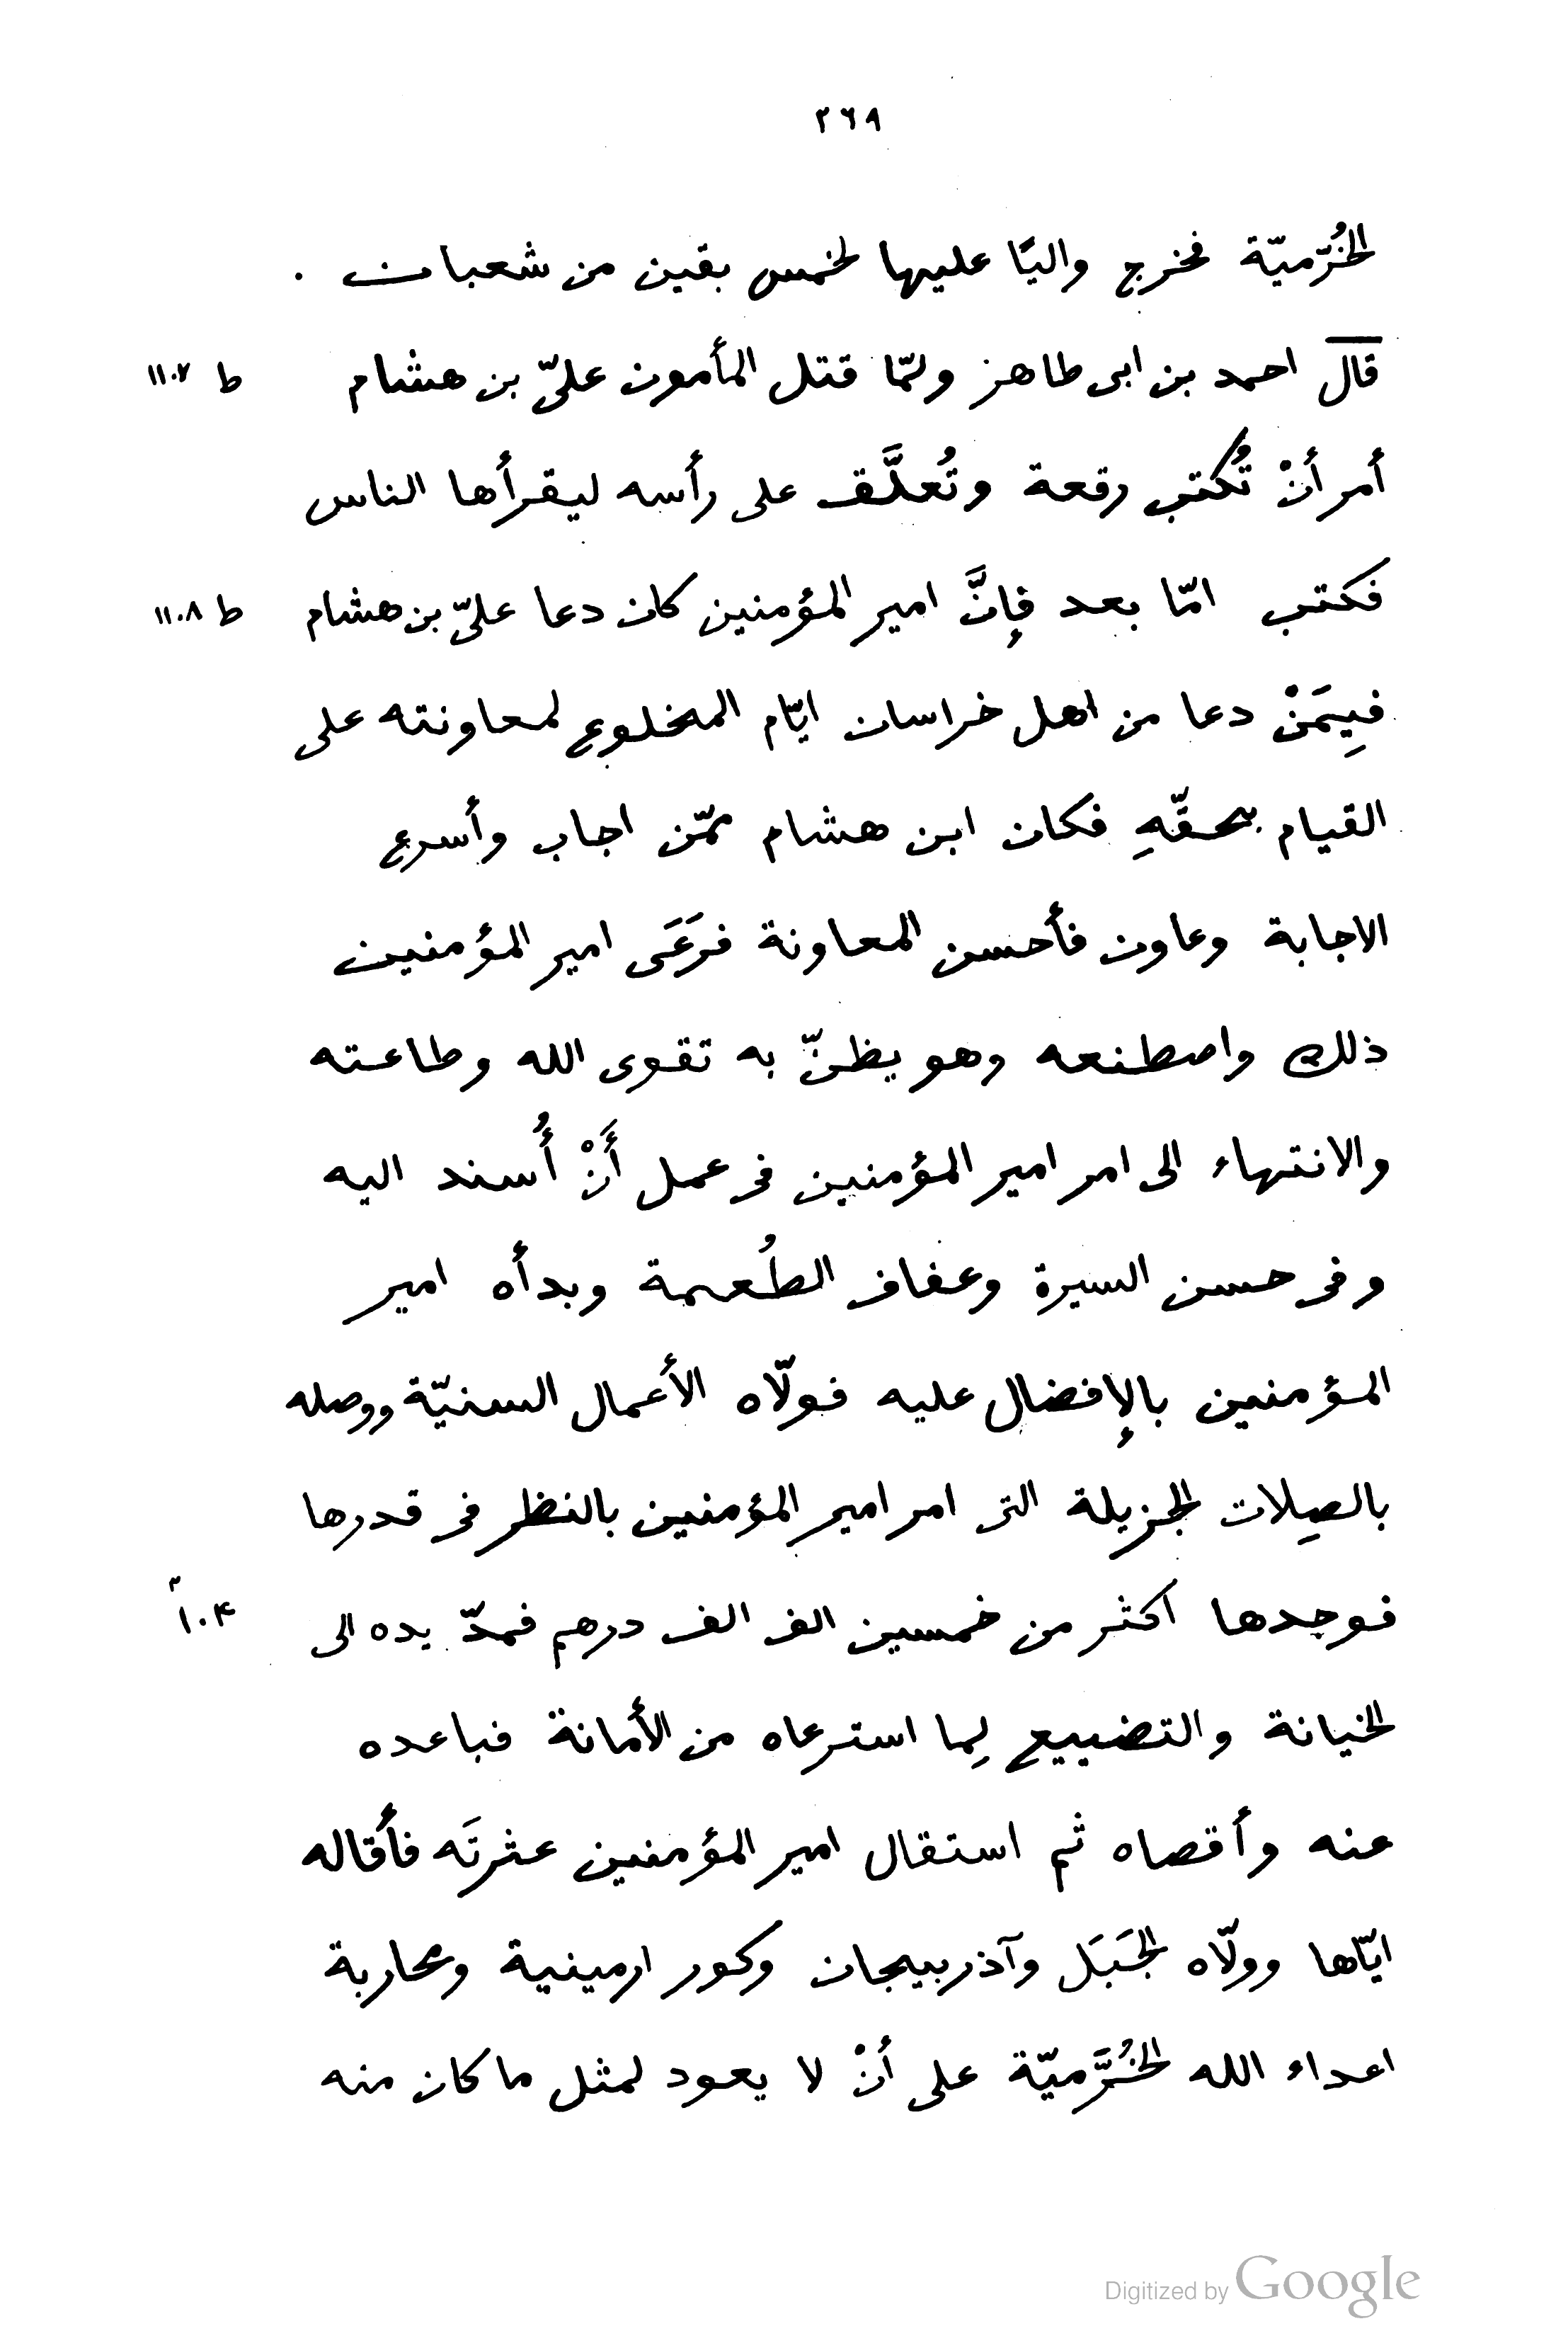 ٢٦٨
الخُرّميّة فخرج واليًا عليها لخمس بقين من شعبان .
قال احمد بن ابى طاهر ولمّا قتل المأمون علىّ بن هشام ط ١١٠٧
أمر أنْ تُكتب رقعة وتُعلَّق على رأسه ليقرأها الناس
فكتب امّا بعد فإنَّ امير المؤمنين كان دعا علىّ بن هشام ط ١١٠٨
فيمَنْ دعا من اهل خراسان ايّام المخلوع لمعاونته على
القيام بحقّهِ فكان ابن هشام ممّن اجاب وأسرع
الاجابة وعاون فأحسن المعاونة فرَعَى امير المؤمنين
ذلك واصطنعه وهو يظنّ به تقوى الله وطاعته
والانتهاء الى امر امير المؤمنين فى عمل أَنْ أُسند اليه
وفى حسن السيرة وعفاف الطُعمة وبدأه امير
المؤمنين بالإفضال عليه فولّاه الأعمال السنيّة ووصله
بالصِلات الجزيلة التى امر امير المؤمنين بالنظر فى قدرها
فوجدها اكثر من خمسين الف الف درهم فمدّ يده الى ١٠٤
الخيانة والتضييع لِما استرعاه من الأمانة فباعده
عنه وأقصاه ثم استقال امير المؤمنين عثرتَه فأقاله
ايّاها وولّاه الجَبَل وآذربيجان وكور ارمينية ومحاربة
اعداء الله الخُرَّميّة على أنْ لا يعود لمثل ما كان منه
Digitized by Google